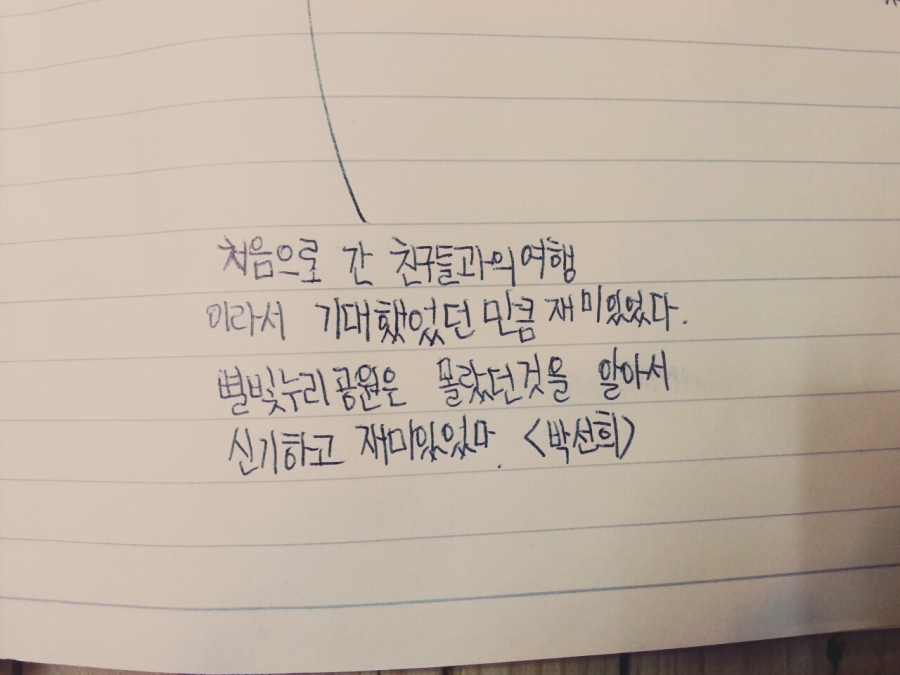 처음으로 간 친구들과의 여행
이라서 기대했었던 만큼 재미있었다.
별빛누리공원은 몰랐던것을 알아서
신기하고 재미있었다. <박선희>